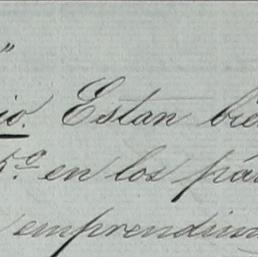 "
io. Estan bie
5º en los pá
emprendim